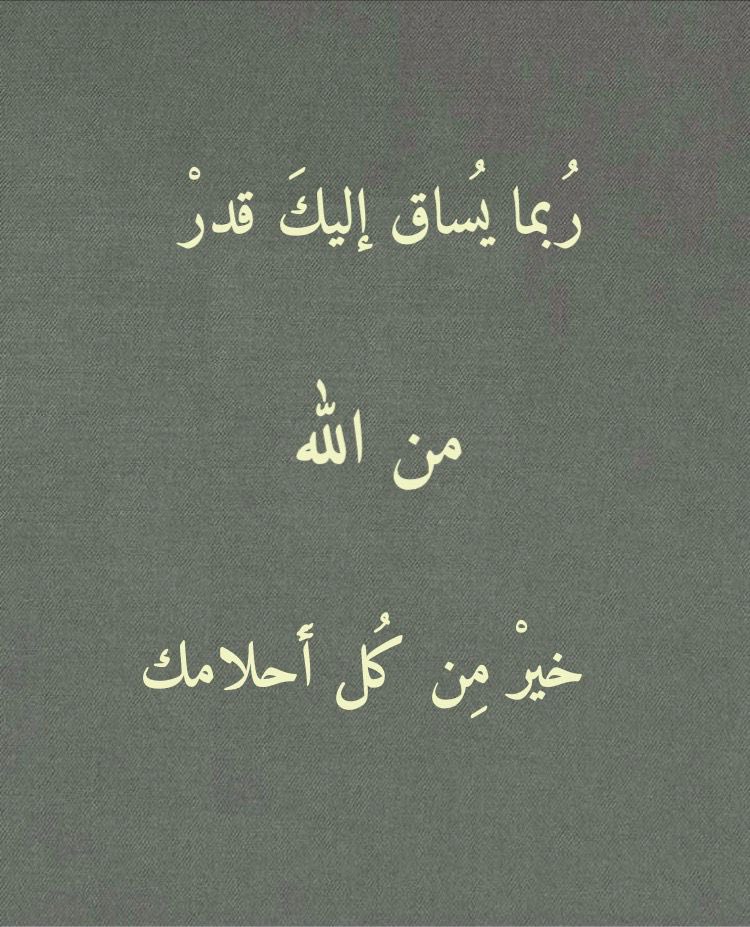 رُبما يُساق إليكَ قدرْ
من الله
خيرْ مِن كُل أَحلامك